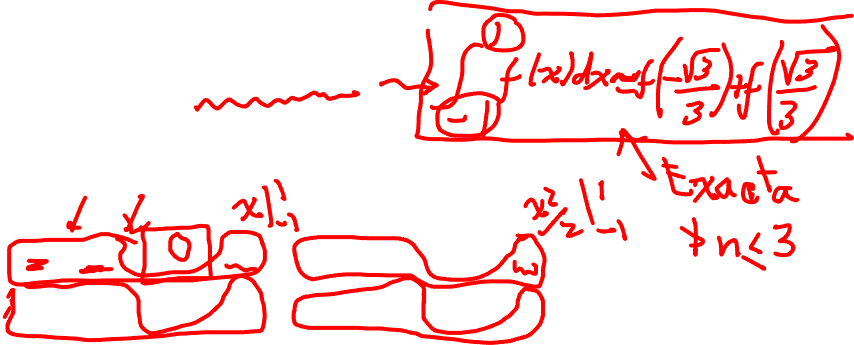 ∫_{-1}^{1} f(x)dx ≈ f(-√3/3) + f(√3/3)
Exacta
p n ≤ 3
x|_{-1}^{1} x²/2|_{-1}^{1}
0